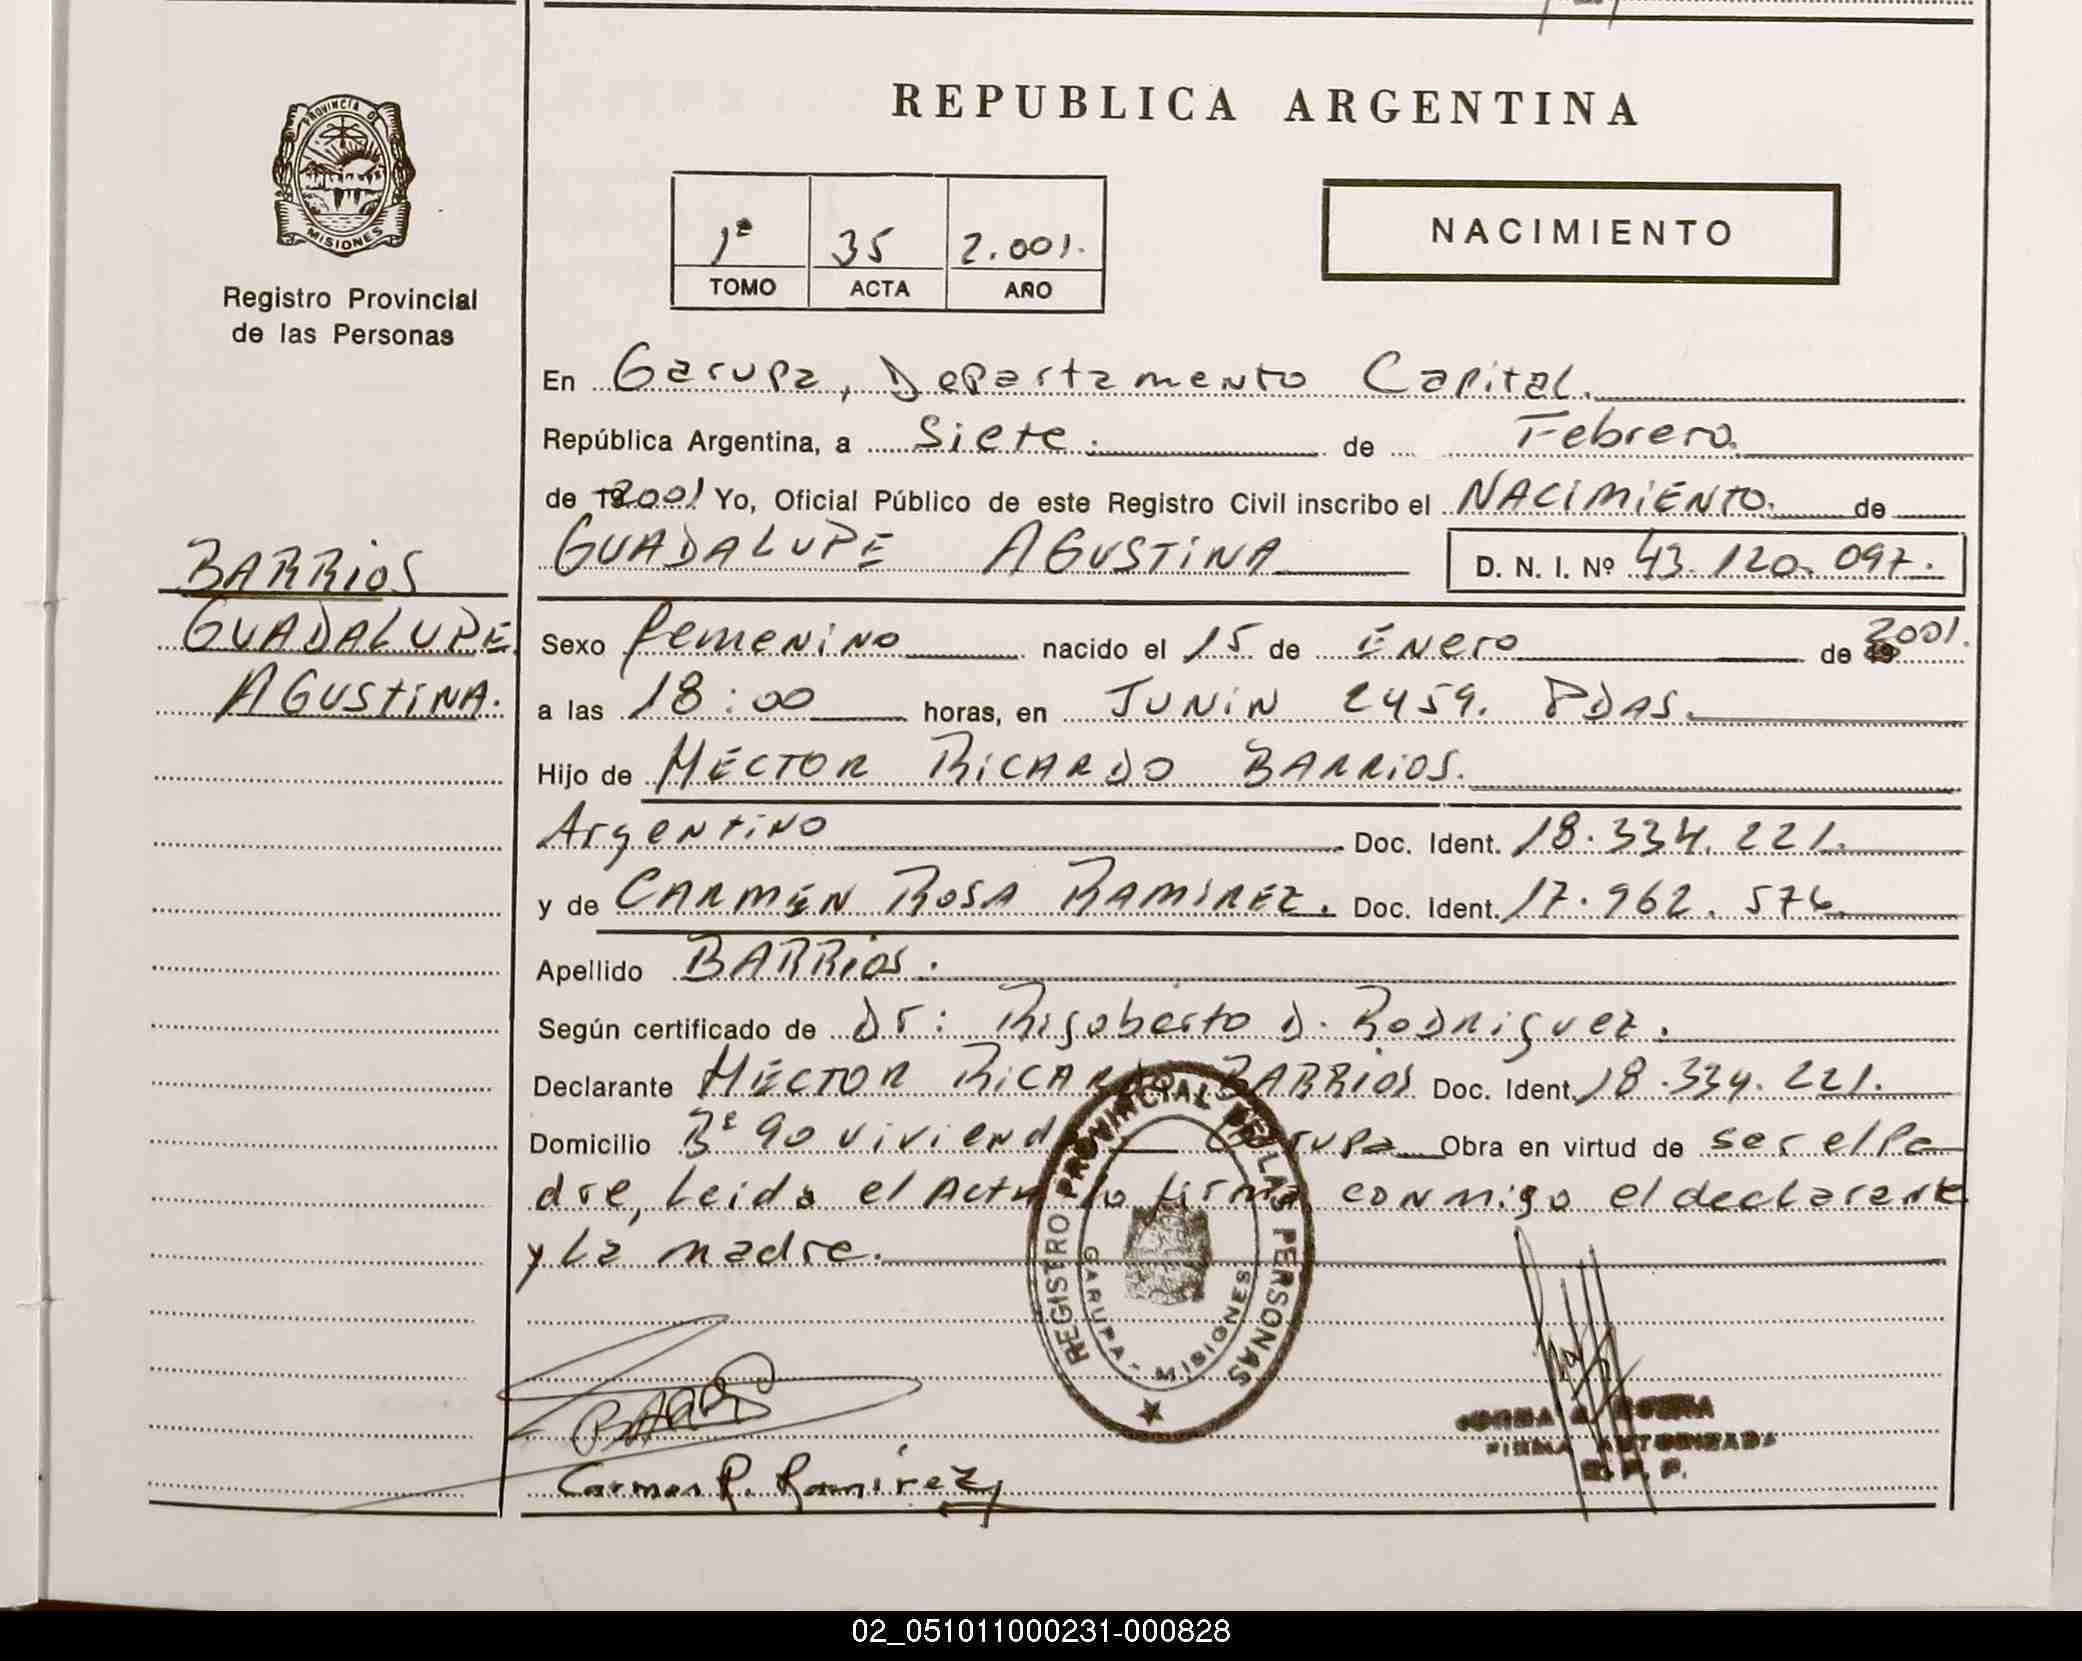 REPUBLICA ARGENTINA
PROVINCIA DE
MISIONES
Registro Provincial
de las Personas
1º 35 2.001.
TOMO ACTA AÑO
NACIMIENTO
En Garupa, Departamento Capital.
República Argentina, a Siete. de Febrero.
de 2001 Yo, Oficial Público de este Registro Civil inscribo el NACIMIENTO. de
GUADALUPE AGUSTINA D. N. I. Nº 43.120.097.
BARRIOS
GUADALUPE
AGUSTINA.
Sexo femenino nacido el 15 de Enero de 2001.
a las 18:00 horas, en JUNIN 2459. PDAS.
Hijo de HÉCTOR RICARDO BARRIOS.
Argentino Doc. Ident. 18.334.221.
y de CARMEN ROSA RAMIREZ. Doc. Ident. 17.962.576.
Apellido BARRIOS.
Según certificado de Dr: Rigoberto D. Rodriguez.
Declarante HÉCTOR RICARDO BARRIOS Doc. Ident. 18.334.221.
Domicilio Bº 90 viviend Garupa Obra en virtud de ser el Pa
dre, Leida el Acta la firma conmigo el declarante
y La madre.
REGISTRO PROVINCIAL DE LAS PERSONAS
GARUPA - MISIONES
BARRIOS
Carmen R. Ramírez
FIRMA AUTORIZADA
R. P. P.
02_051011000231-000828